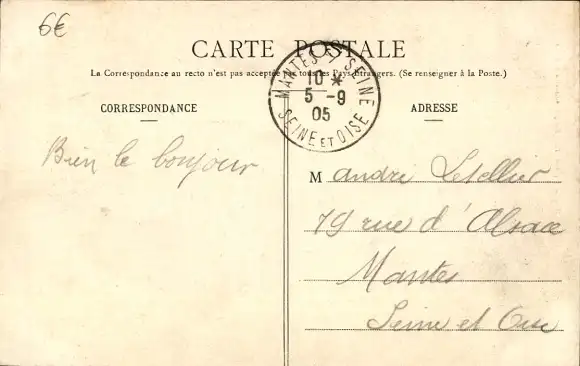 6€
CARTE POSTALE
La Correspondance au recto n'est pas acceptée par tous les Pays étrangers. (Se renseigner à la Poste.)
MANTES S/ SEINE
10 *
5 -9
05
SEINE ET OISE
CORRESPONDANCE
ADRESSE
Bien le bonjour
M andré Letellier
79 rue d'Alsace
Mantes
Seine et Oise